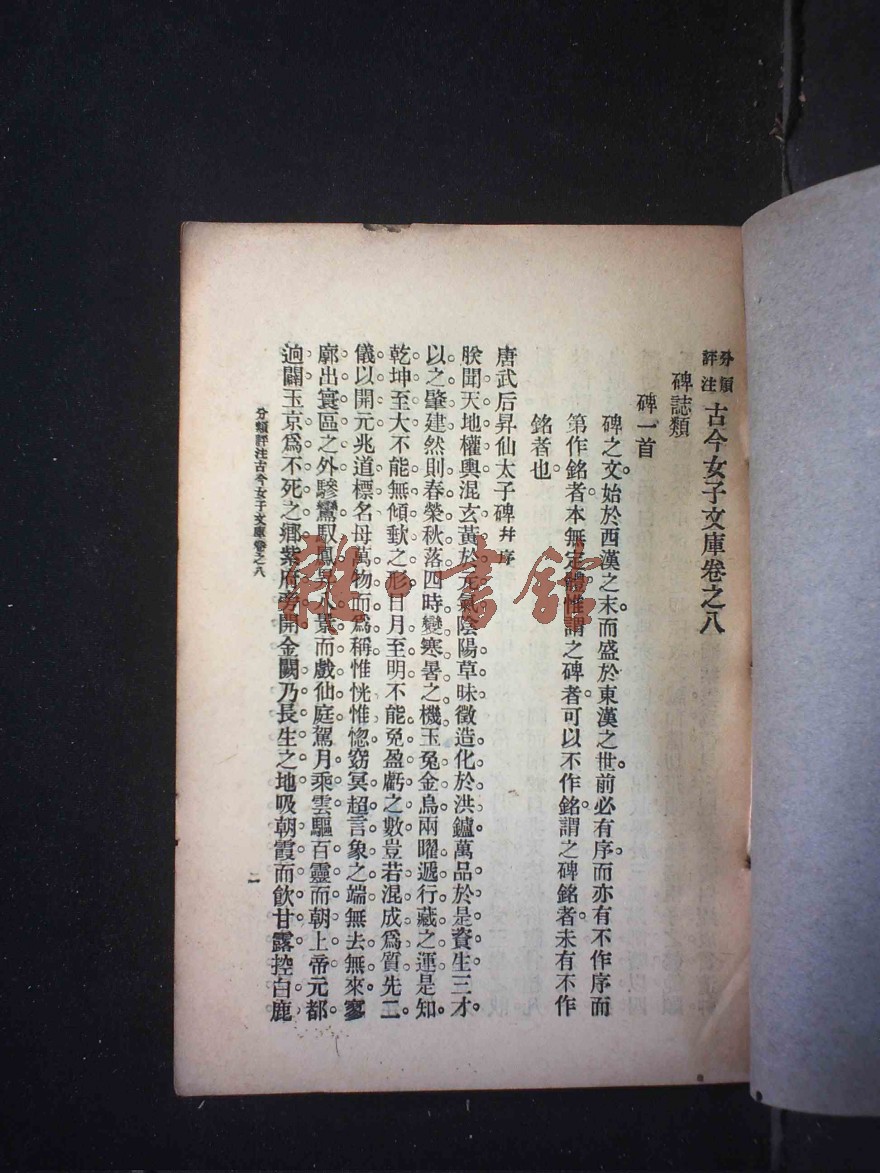 分類評注古今女子文庫卷之八
碑誌類
碑一首
碑之文。始於西漢之末。而盛於東漢之世。前必有序。而亦有不作序而
第作銘者。本無定體。惟謂之碑者。可以不作銘。謂之碑銘者。未有不作
銘者也。
唐武后昇仙太子碑幷序
朕聞天地權輿。混玄黃於元氣。陰陽草昧。徵造化於洪鑪。萬品於是資生。三才
以之肇建。然則春榮秋落。四時變寒暑之機。玉兔金烏。兩曜遞行藏之運。是知
乾坤至大。不能無傾歁之形。日月至明。不能免盈虧之數。豈若混成爲質。先二
儀以開元。兆道標名。母萬物而爲稱。惟恍惟惚。窈冥超言象之端。無去無來。寥
廓出寰區之外。驂鸞馭鳳。昇八景而戲仙庭。駕月乘雲。驅百靈而朝上帝。元都
迥闢。玉京爲不死之鄉。紫府旁開。金闕乃長生之地。吸朝霞而飲甘露。控白鹿
分類評注古今女子文庫卷之八
雜·書館